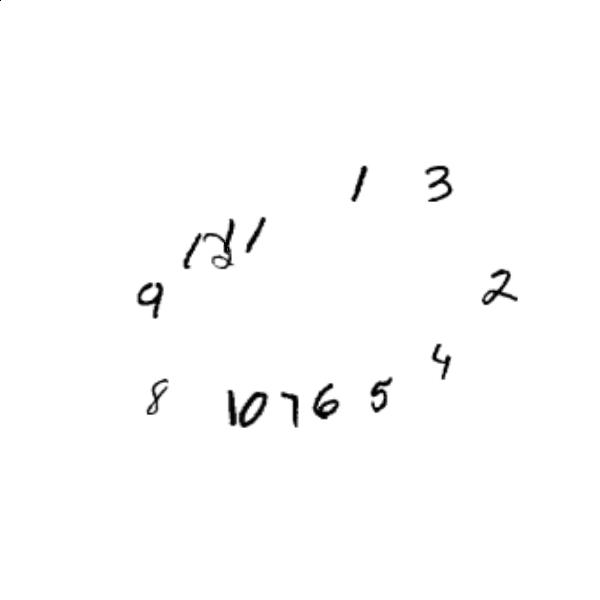 1 3
12 11
9 2
4
8 10 7 6 5